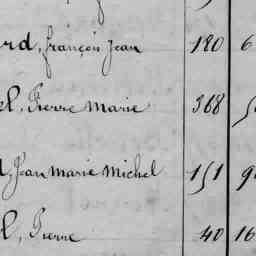 rd, françois Jean 180 6
l, Pierre Marie 368
Jean Marie Michel 151 9
l, Pierre 40 16